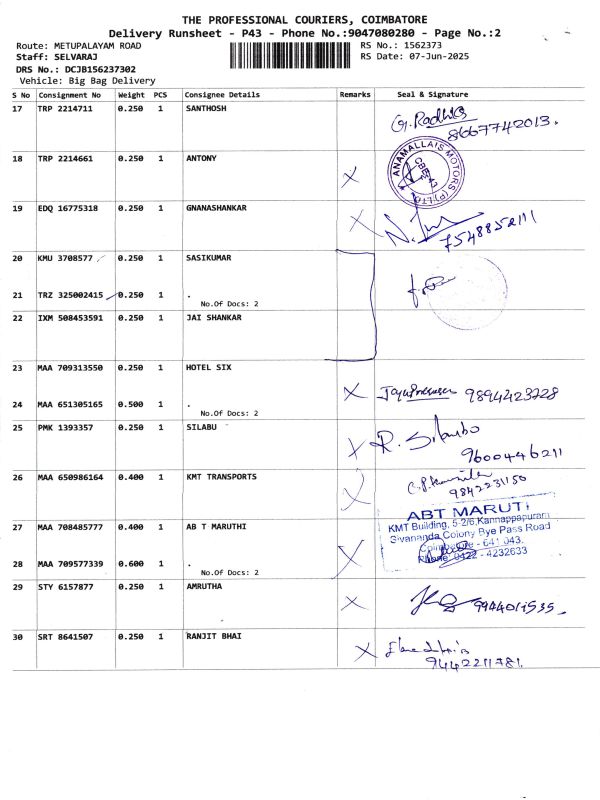 THE PROFESSIONAL COURIERS, COIMBATORE
Delivery Runsheet - P43 - Phone No.:9047080280 - Page No.:2
Route: METUPALAYAM ROAD RS No.: 1562373
Staff: SELVARAJ RS Date: 07-Jun-2025
DRS No.: DCJB156237302
Vehicle: Big Bag Delivery
S No Consignment No Weight PCS Consignee Details Remarks Seal & Signature
17 TRP 2214711 0.250 1 SANTHOSH
G. Radhika
8667742013.
18 TRP 2214661 0.250 1 ANTONY X
ANAMALLAIS MOTORS (P) LTD
19 EDQ 16775318 0.250 1 GNANASHANKAR X
20 KMU 3708577 0.250 1 SASIKUMAR
21 TRZ 325002415 0.250 1 .
No.Of Docs: 2
22 IXM 508453591 0.250 1 JAI SHANKAR
23 MAA 709313550 0.250 1 HOTEL SIX
X 9894423728
24 MAA 651305165 0.500 1 .
No.Of Docs: 2
25 PMK 1393357 0.250 1 SILABU
X R. Silambo
9600446211
26 MAA 650986164 0.400 1 KMT TRANSPORTS X
9842231150
ABT MARUTI
KMT Building, 5-2/6,Kannappapuram
27 MAA 708485777 0.400 1 AB T MARUTHI
Sivananda Colony Bye Pass Road
Coimbatore - 641 043.
Phone: 0422 - 4232633
X
28 MAA 709577339 0.600 1 .
No.Of Docs: 2
29 STY 6157877 0.250 1 AMRUTHA
X
30 SRT 8641507 0.250 1 RANJIT BHAI
X
9442211781.